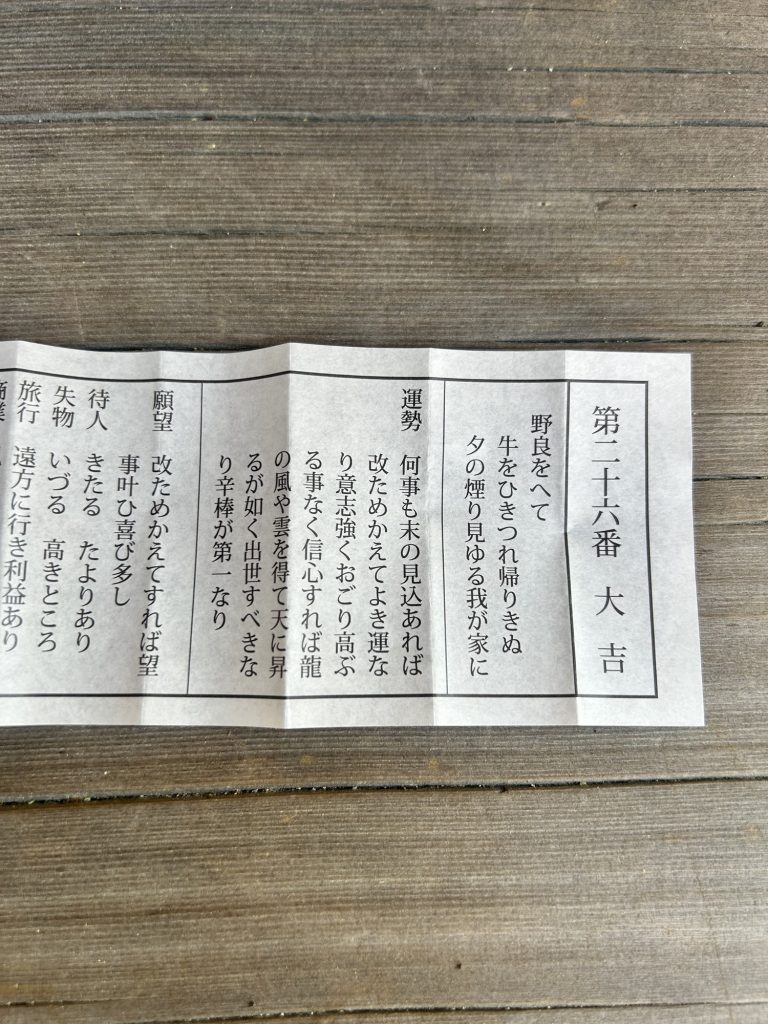 第二十六番 大吉
野良をへて
牛をひきつれ帰りきぬ
夕の煙り見ゆる我が家に
運勢 何事も末の見込あれば
改ためかえてよき運な
り意志強くおごり高ぶ
る事なく信心すれば龍
の風や雲を得て天に昇
るが如く出世すべきな
り辛棒が第一なり
願望 改ためかえてすれば望
事叶ひ喜び多し
待人 きたる たよりあり
失物 いづる 高きところ
旅行 遠方に行き利益あり
商業